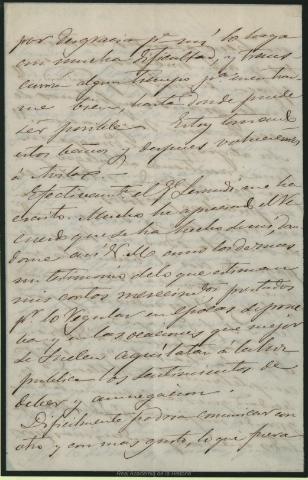 por desgracia pª mí la hago
con mucha dificultad, y trans
currirá algun tiempo pª encontrar
me bien, hasta donde puede
ser posible. Estoy tomand
estos baños y despues volveremos
á
Efectivamte. el Gl. me ha
escrito. Mucho he apreciado el Re
cuerdo que se ha hecho de mí, dan
dome así V. M. como los demas
un testimonio de lo que estiman
mis cortos merecimtos. prestados
pr. lo regular en epocas de prue
ba y en las ocasiones que mejor
se suelen aquilatar á la luz
publica los sentimientos de
deber y abnegacion.
Dificilmente podria comunicar con
otro y con mas gusto, lo que fuera
Real Academia de la Historia